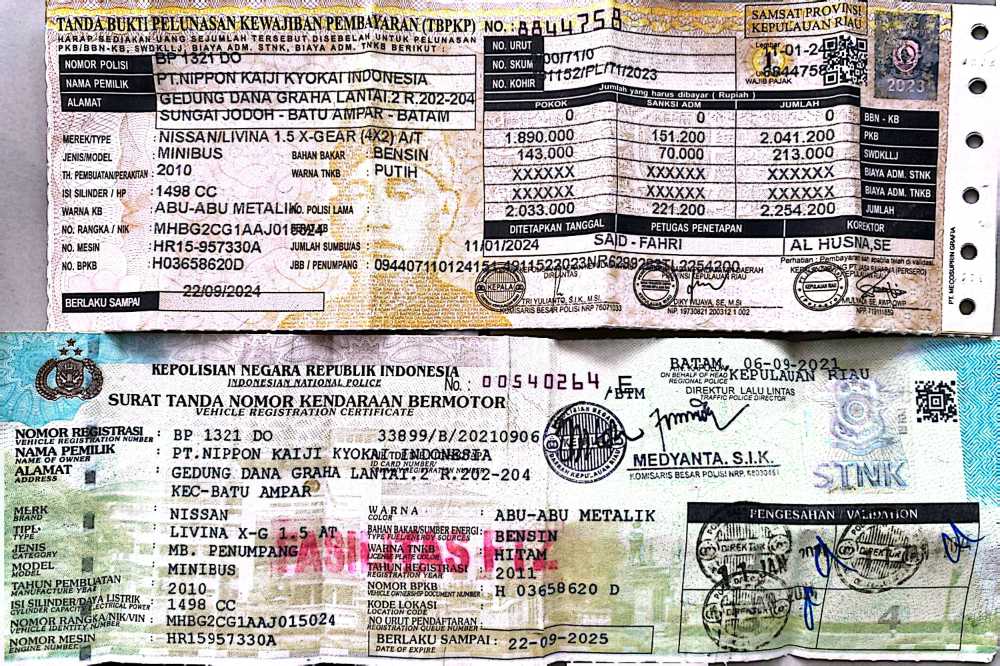 TANDA BUKTI PELUNASAN KEWAJIBAN PEMBAYARAN (TBPKP) NO.: 8844758
HARAP SEDIAKAN UANG SEJUMLAH TERSEBUT DISEBELAH UNTUK PELUNASAN
PKB/BBN-KB, SWDKLLJ, BIAYA ADM. STNK, BIAYA ADM. TNKB BERIKUT :
SAMSAT PROVINSI
KEPULAUAN RIAU
NOMOR POLISI BP 1321 DO
NAMA PEMILIK PT.NIPPON KAIJI KYOKAI INDONESIA
ALAMAT GEDUNG DANA GRAHA LANTAI.2 R.202-204
SUNGAI JODOH - BATU AMPAR - BATAM
MEREK/TYPE : NISSAN/LIVINA 1.5 X-GEAR (4X2) A/T
JENIS/MODEL : MINIBUS BAHAN BAKAR : BENSIN
TH. PEMBUATAN/PERAKITAN : 2010 WARNA TNKB : PUTIH
ISI SILINDER / HP : 1498 CC
WARNA KB : ABU-ABU METALIK NO. POLISI LAMA :
NO. RANGKA / NIK : MHBG2CG1AAJ015024
NO. MESIN : HR15-957330A JUMLAH SUMBU/AS :
NO. BPKB : H03658620D JBB / PENUMPANG :
BERLAKU SAMPAI 22/09/2024
NO. URUT
NO. SKUM
NO. KOHIR
2023
WAJIB PAJAK
Jumlah yang harus dibayar ( Rupiah )
POKOK SANKSI ADM JUMLAH
0 0 0 BBN - KB
1.890.000 151.200 2.041.200 PKB
143.000 70.000 213.000 SWDKLLJ
XXXXXX XXXXXX XXXXXX BIAYA ADM. STNK
XXXXXX XXXXXX XXXXXX BIAYA ADM. TNKB
2.033.000 221.200 2.254.200 JUMLAH
DITETAPKAN TANGGAL PETUGAS PENETAPAN KOREKTOR
11/01/2024 SAID - FAHRI AL HUSNA,SE
KEPOLISIAN NEGARA REPUBLIK INDONESIA
INDONESIAN NATIONAL POLICE
No.: 00540264 E
SURAT TANDA NOMOR KENDARAAN BERMOTOR /BTM
VEHICLE REGISTRATION CERTIFICATE
NOMOR REGISTRASI : BP 1321 DO 33899/B/20210906
VEHICLE REGISTRATION NUMBER
NAMA PEMILIK : PT.NIPPON KAIJI KYOKAI INDONESIA
NAME OF OWNER
ALAMAT : GEDUNG DANA GRAHA LANTAI.2 R.202-204
ADDRESS
KEC-BATU AMPAR
BATAM, 06-09-2021
KEPULAUAN RIAU
ON BEHALF OF HEAD
REGIONAL POLICE
DIREKTUR LALU LINTAS
TRAFFIC POLICE DIRECTOR
MEDYANTA. S.I.K.
STNK
MERK : NISSAN
BRAND
TIPE : LIVINA X-G 1.5 AT
TYPE
JENIS : MB. PENUMPANG
CATEGORY
MODEL : MINIBUS
MODEL
TAHUN PEMBUATAN : 2010
MANUFACTURE YEAR
ISI SILINDER/DAYA LISTRIK : 1498 CC
CYLINDER CAPACITY/ELECTRICAL POWER
NOMOR RANGKA/NIK/VIN : MHBG2CG1AAJ015024
VEHICLE IDENTITY NUMBER
NOMOR MESIN : HR15957330A
ENGINE NUMBER
WARNA : ABU-ABU METALIK
COLOR
BAHAN BAKAR/SUMBER ENERGI : BENSIN
TYPE FUEL/ENERGY SOURCES
WARNA TNKB : HITAM
LICENSE PLATE COLOR
TAHUN REGISTRASI : 2011
REGISTRATION YEAR
NOMOR BPKB : H 03658620 D
VEHICLE OWNERSHIP DOCUMENT NUMBER
KODE LOKASI :
LOCATION CODE
NO URUT PENDAFTARAN :
REGISTRATION QUEUE NUMBER
BERLAKU SAMPAI : 22-09-2025
DATE OF EXPIRE
PENGESAHAN / VALIDATION